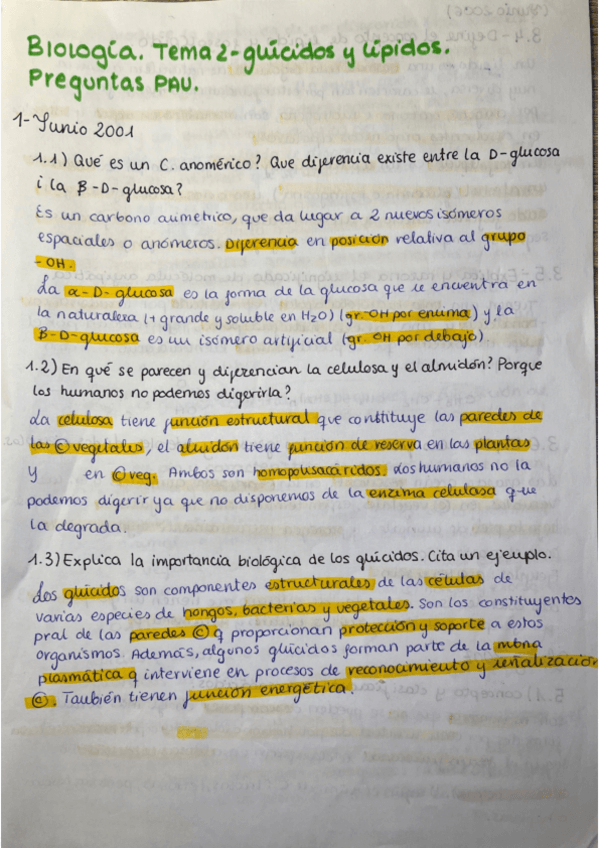 Biología. Tema 2-glúcidos y lípidos.
Preguntas PAU.
1-Junio 2001
1.1) Qué es un C. anomérico? Que diferencia existe entre la D-glucosa
i la β-D-glucosa?
Es un carbono asimetrico, que da lugar a 2 nuevos isómeros
espaciales o anómeros. Diferencia en posición relativa al grupo
-OH.
La α-D-glucosa es la forma de la glucosa que se encuentra en
la naturaleza (+ grande y soluble en H2O) (gr. OH por encima) y la
B-D-glucosa es un isómero artificial (gr. OH por debajo)
1.2) En qué se parecen y diferencian la celulosa y el almidón? Porque
los humanos no podemos digerirla?
La celulosa tiene función estructural que constituye las paredes de
las © vegetales, el almidón tiene función de reserva en las plantas
y en © veg. Ambos son homopolisacáridos. Los humanos no la
podemos digerir ya que no disponemos de la enzima celulasa que
la degrada.
1.3) Explica la importancia biológica de los glúcidos. Cita un ejemplo.
Los glúcidos son componentes estructurales de las células de
varias especies de hongos, bacterias y vegetales. Son los constituyentes
pral de las paredes © q proporcionan protección y soporte a estos
organismos. Además, algunos glúcidos forman parte de la mbna
plasmática q interviene en procesos de reconocimiento y señalización
©. También tienen función energética.